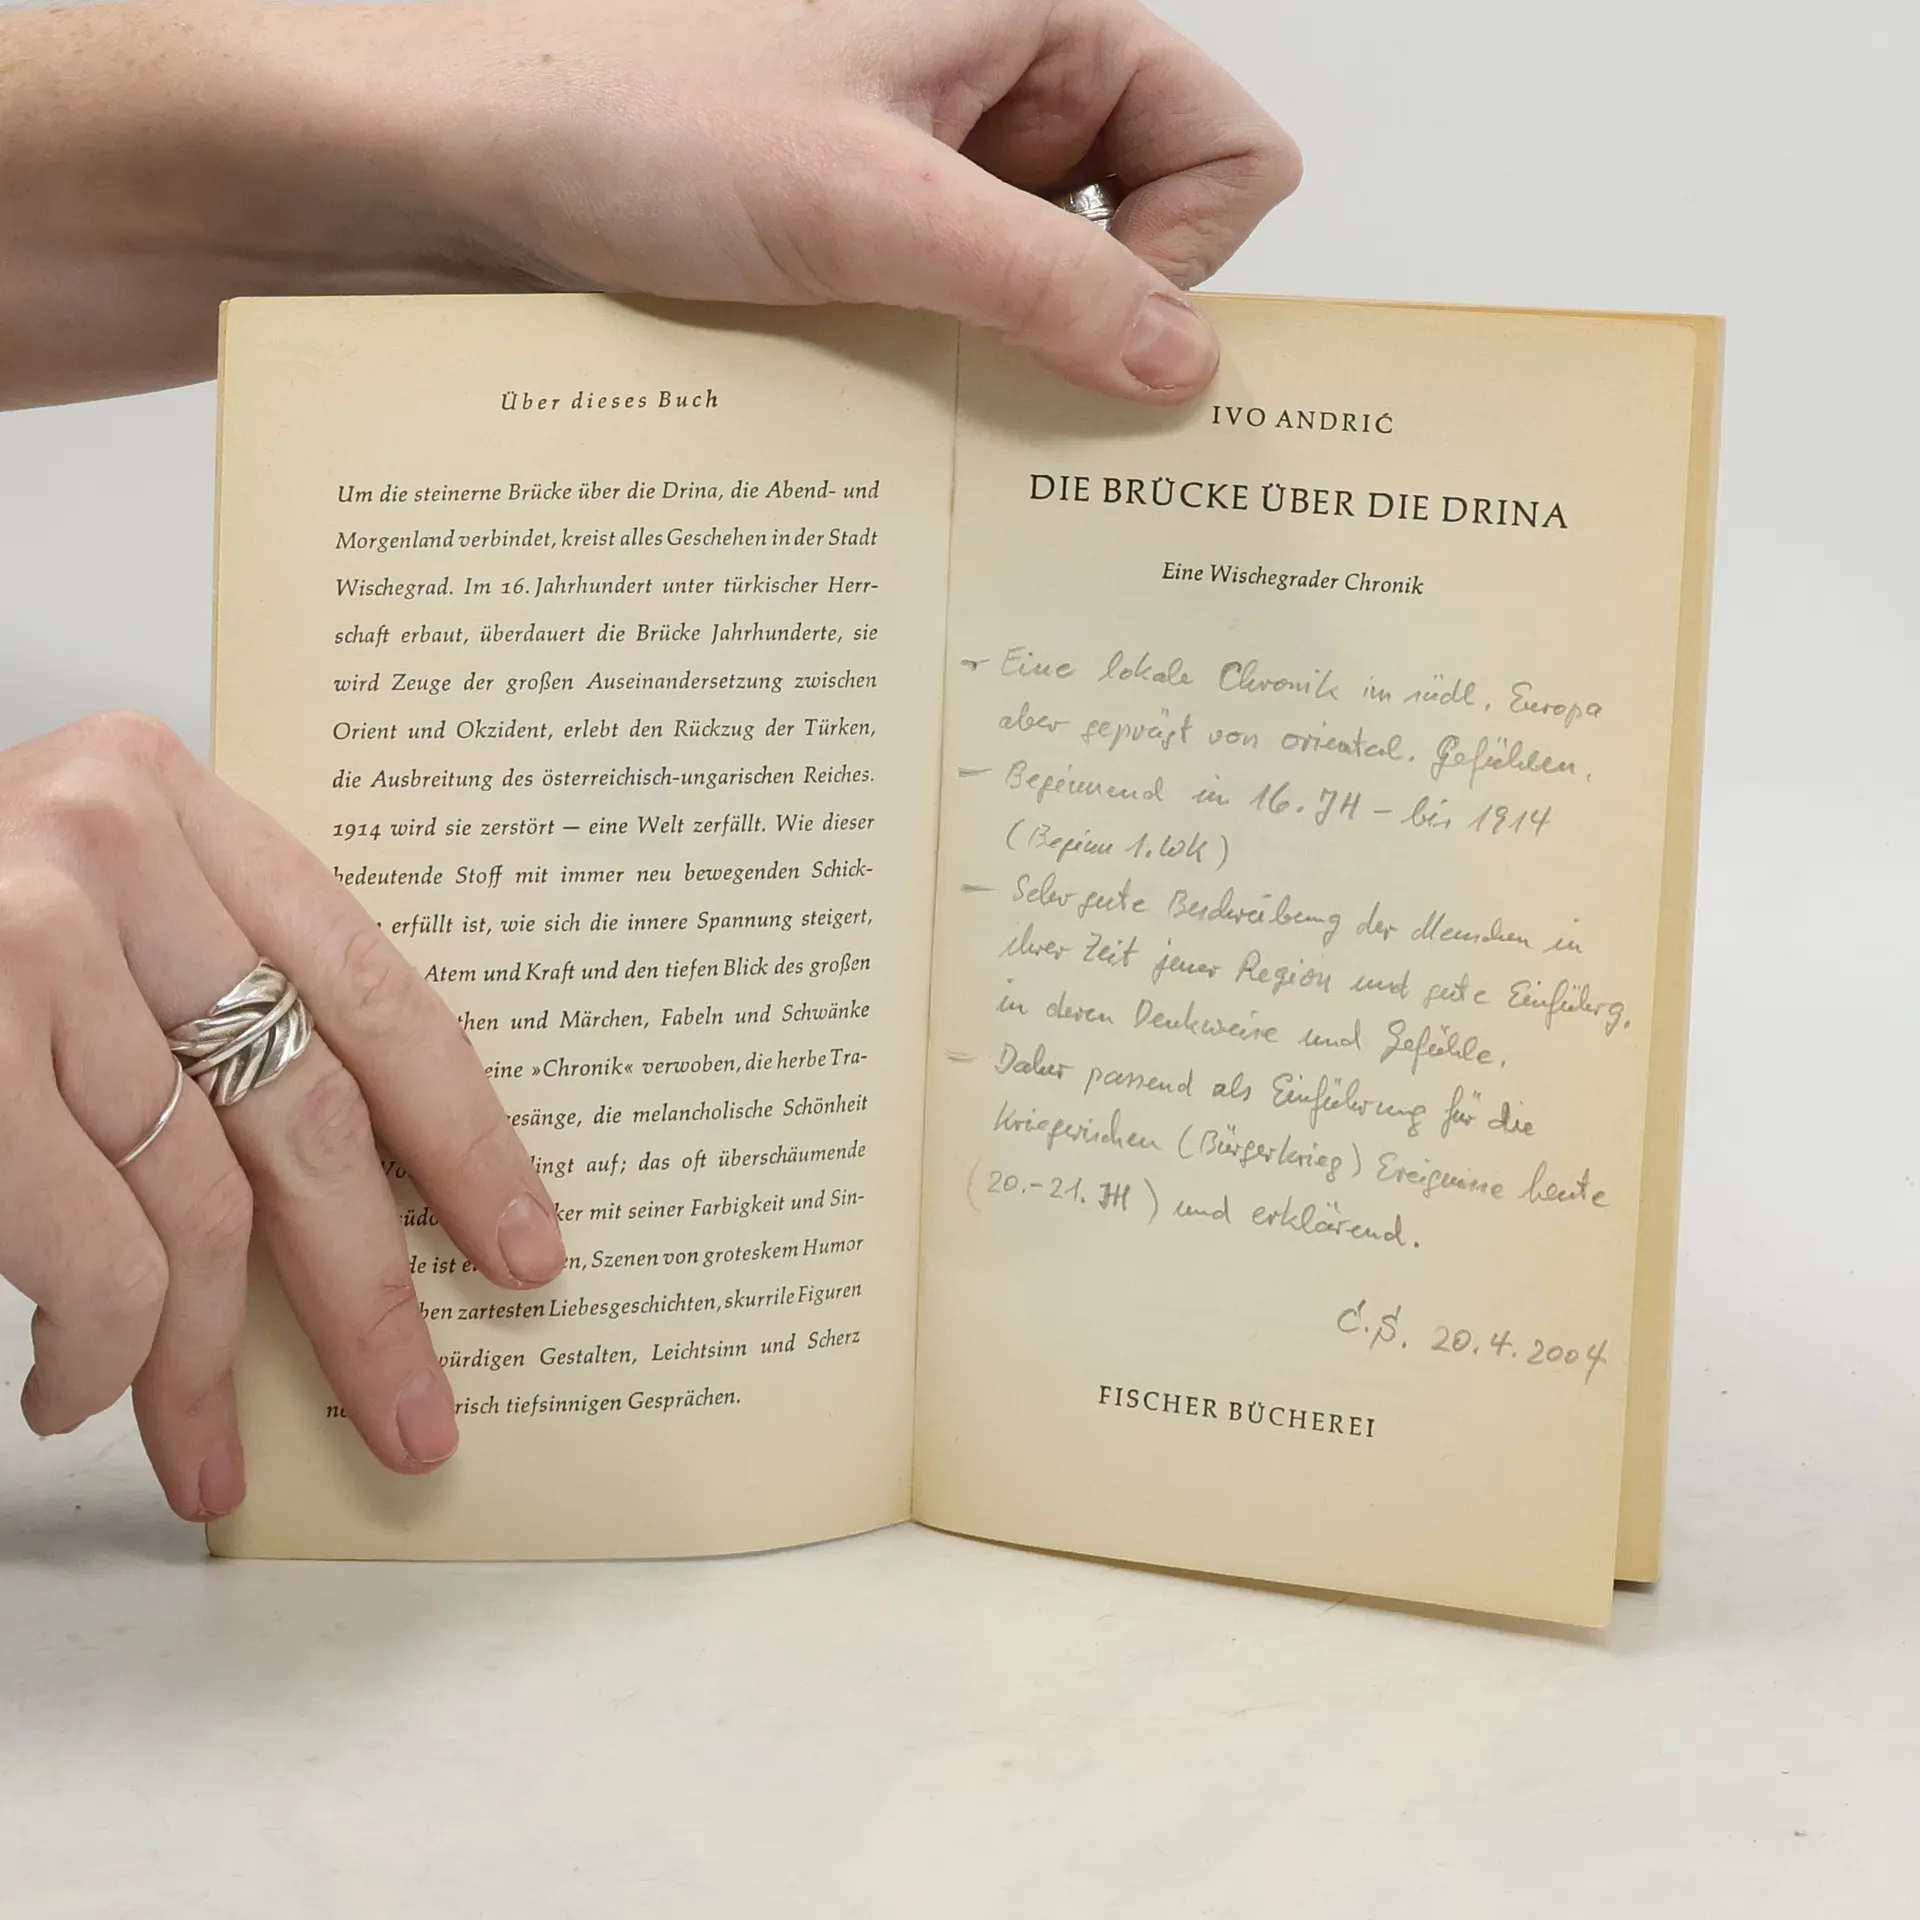 Über dieses Buch
Um die steinerne Brücke über die Drina, die Abend- und
Morgenland verbindet, kreist alles Geschehen in der Stadt
Wischegrad. Im 16. Jahrhundert unter türkischer Herr-
schaft erbaut, überdauert die Brücke Jahrhunderte, sie
wird Zeuge der großen Auseinandersetzung zwischen
Orient und Okzident, erlebt den Rückzug der Türken,
die Ausbreitung des österreichisch-ungarischen Reiches.
1914 wird sie zerstört — eine Welt zerfällt. Wie dieser
bedeutende Stoff mit immer neu bewegenden Schick-
erfüllt ist, wie sich die innere Spannung steigert,
Atem und Kraft und den tiefen Blick des großen
then und Märchen, Fabeln und Schwänke
eine »Chronik« verwoben, die herbe Tra-
esänge, die melancholische Schönheit
lingt auf; das oft überschäumende
ker mit seiner Farbigkeit und Sin-
de ist en, Szenen von groteskem Humor
ben zartesten Liebesgeschichten, skurrile Figuren
würdigen Gestalten, Leichtsinn und Scherz
ne risch tiefsinnigen Gesprächen.
IVO ANDRIĆ
DIE BRÜCKE ÜBER DIE DRINA
Eine Wischegrader Chronik
- Eine lokale Chronik im südl. Europa
aber geprägt von oriental. Gefühlen.
- Beginnend im 16. JH - bis 1914
(Beginn 1. WK)
- Sehr gute Beschreibung der Menschen in
ihrer Zeit jener Region und gute Einführg.
in deren Denkweise und Gefühle.
- Daher passend als Einführung für die
kriegerischen (Bürgerkrieg) Ereignisse heute
(20.-21. JH) und erklärend.
C.S. 20.4.2004
FISCHER BÜCHEREI